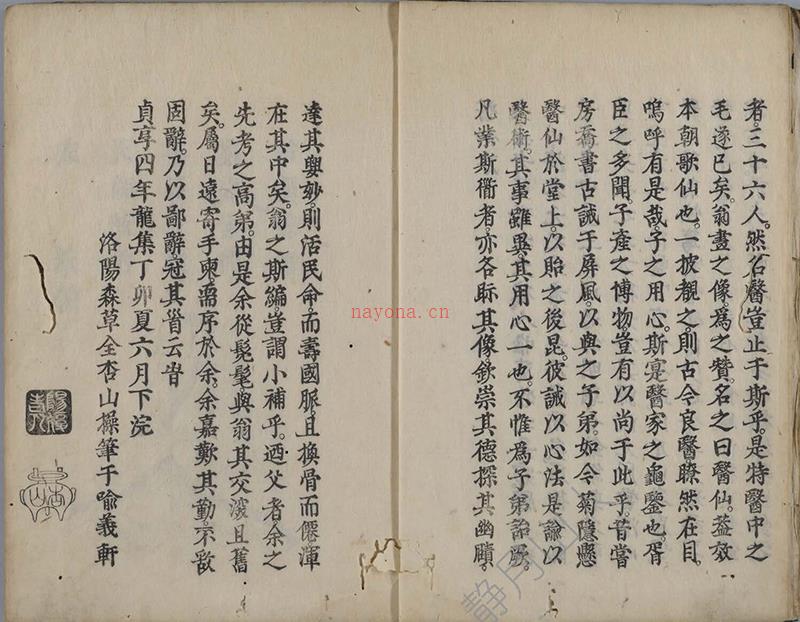 者三十六人。然名醫豈止于斯乎。是特醫中之
毛遂已矣。翁畫之像爲之贊。名之曰醫仙。蓋效
本朝歌仙也。一披覩之。則古今良醫瞭然在目。
嗚呼有是哉。子之用心。斯寔醫家之龜鑒也。胥
臣之多聞。子產之博物。豈有以尚于此乎。昔嘗
房喬書古誡于屏風。以與之子弟。如今菊隱懸
醫仙於堂上。以貽之後昆。彼誡以心法是諭以
醫術。其事雖異。其用心一也。不惟爲子弟詒厥。
凡業斯衢者。亦各眎其像欽崇其德探其幽賾。
達其要妙。則活民命。而壽國脈。且換骨而僊渾
在其中矣。翁之斯編。豈謂小補乎。迺父者余之
先考之高弟。由是余從髧髦與翁其交深且舊
矣。屬日遠寄手柬需序於余。余嘉歎其勤。不敢
固辭。乃以鄙辭。冠其首云旹
貞享四年龍集丁卯夏六月下浣
洛陽森草全杏山操筆于喻義軒
nayona.cn